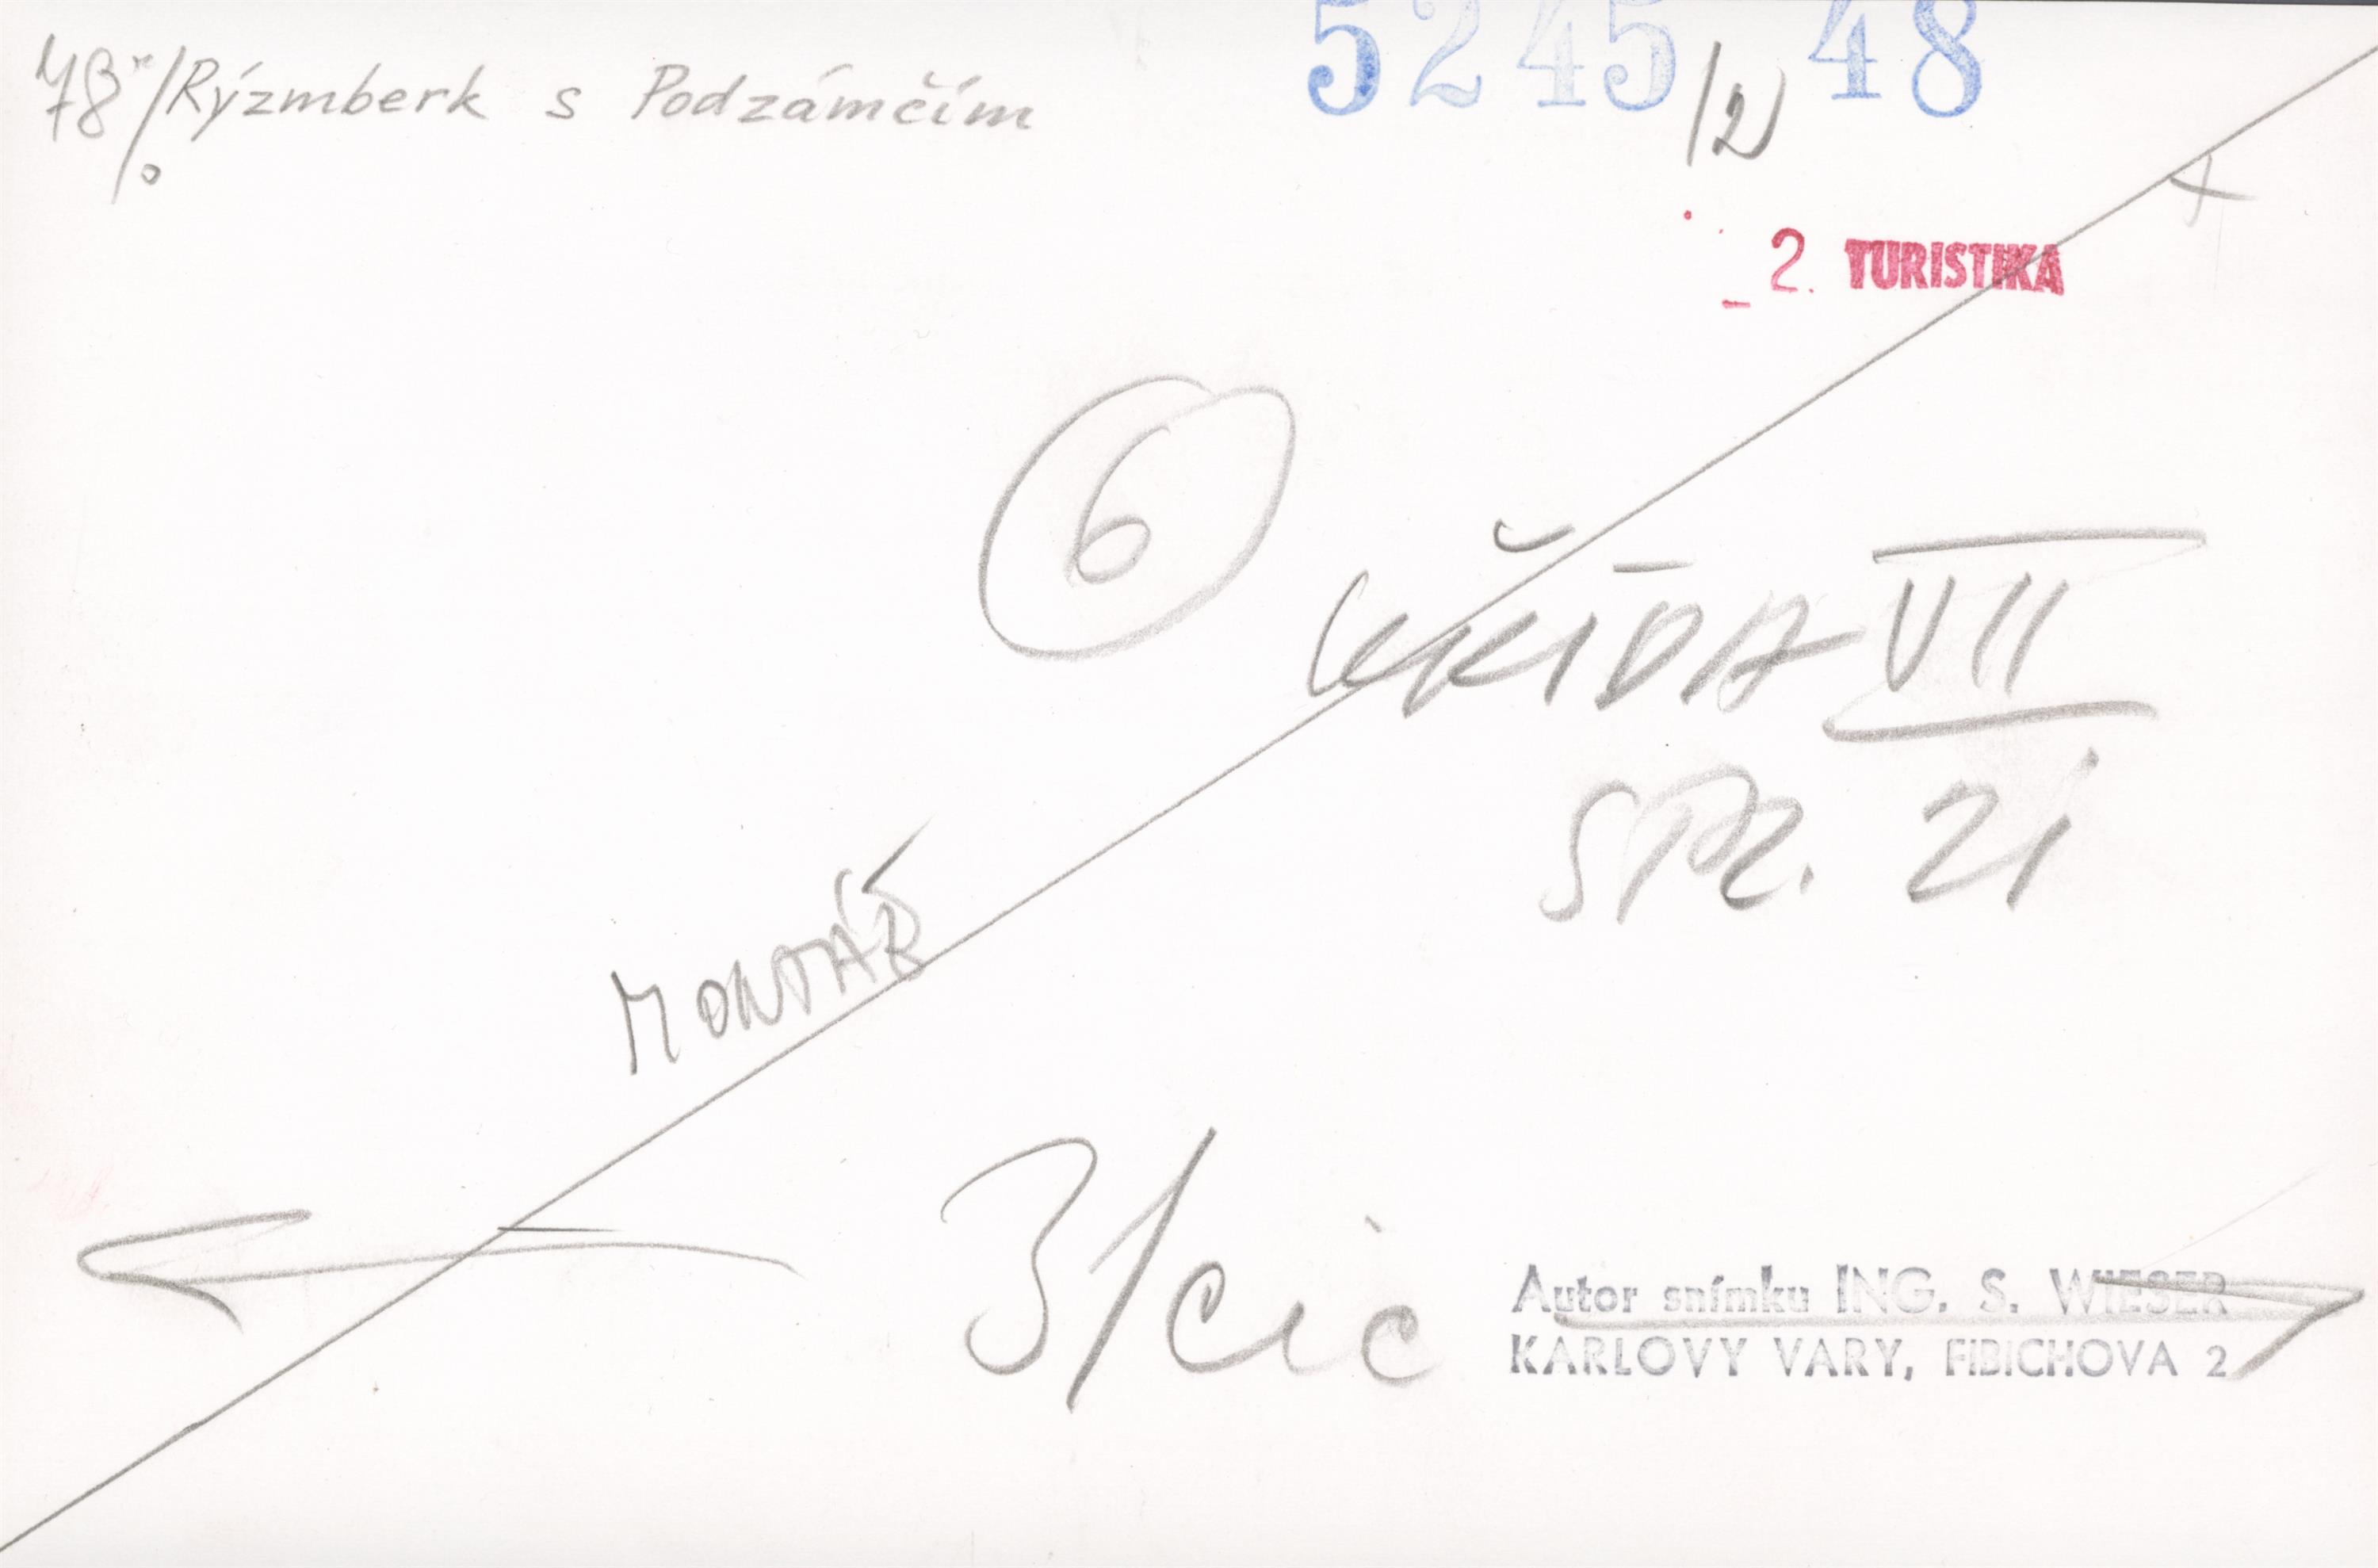 78/Rýzmberk s Podzámčím
5245/2 48
2. TURISTIKA
6
KŘÍDA VII
STR. 21
MONTÁŽ
3/cic
Autor snímku ING. S. WIESER
KARLOVY VARY, FIBICHOVA 2